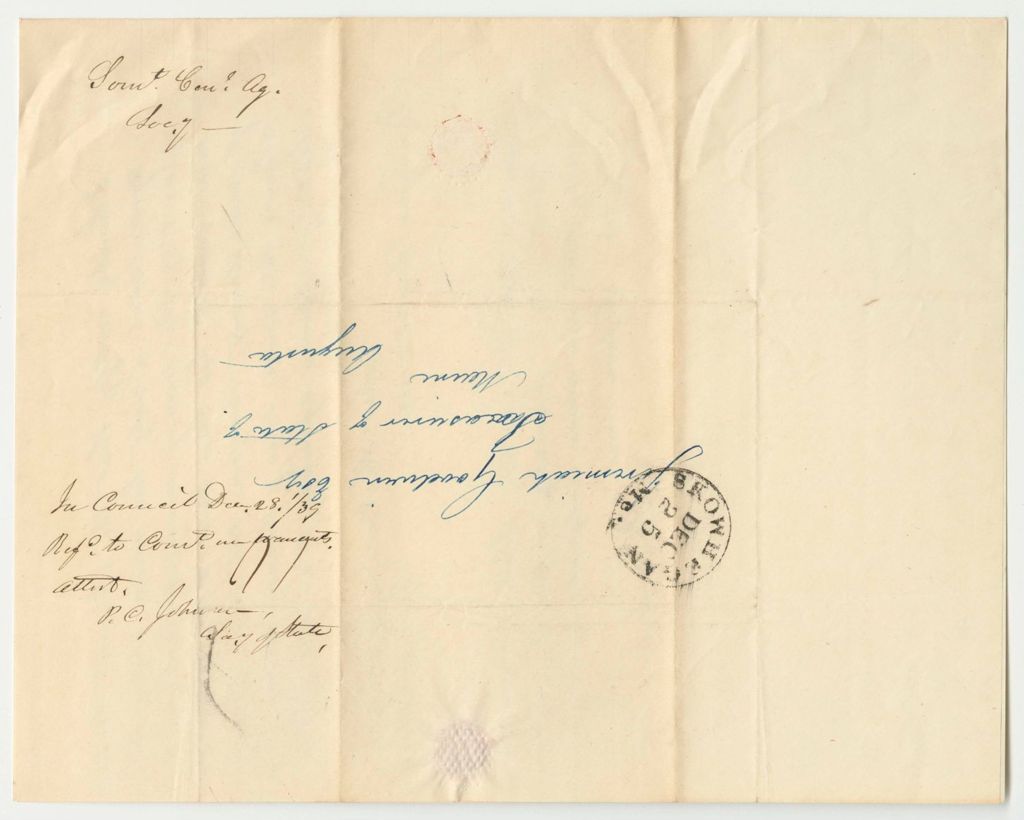 Somt. Cenl. Ag.
Socy —
Jeremiah Goodwin Esq
Treasurer of State of
Maine
Augusta
SKOWHEGAN
DEC
25
Me.
In Council Dec. 28. 1839
Refd. to Comtee. on accounts.
attest.
P. C. Johnson,
Secy of State,